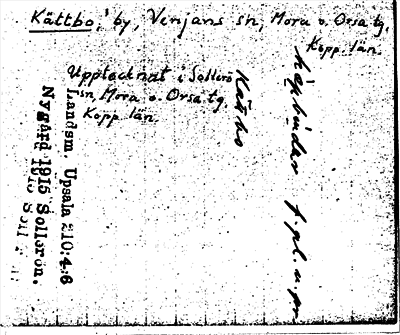 Kättbo, by, Venjans sn, Mora o. Orsa tg.
Kopp. län.
Upptecknat i Sollerö
sn, Mora o. Orsa tg.
Kopp. län.
Kätbo
f. pl.
Landsm. Upsala 210:4.6
Nygård 1915 Sollerön.